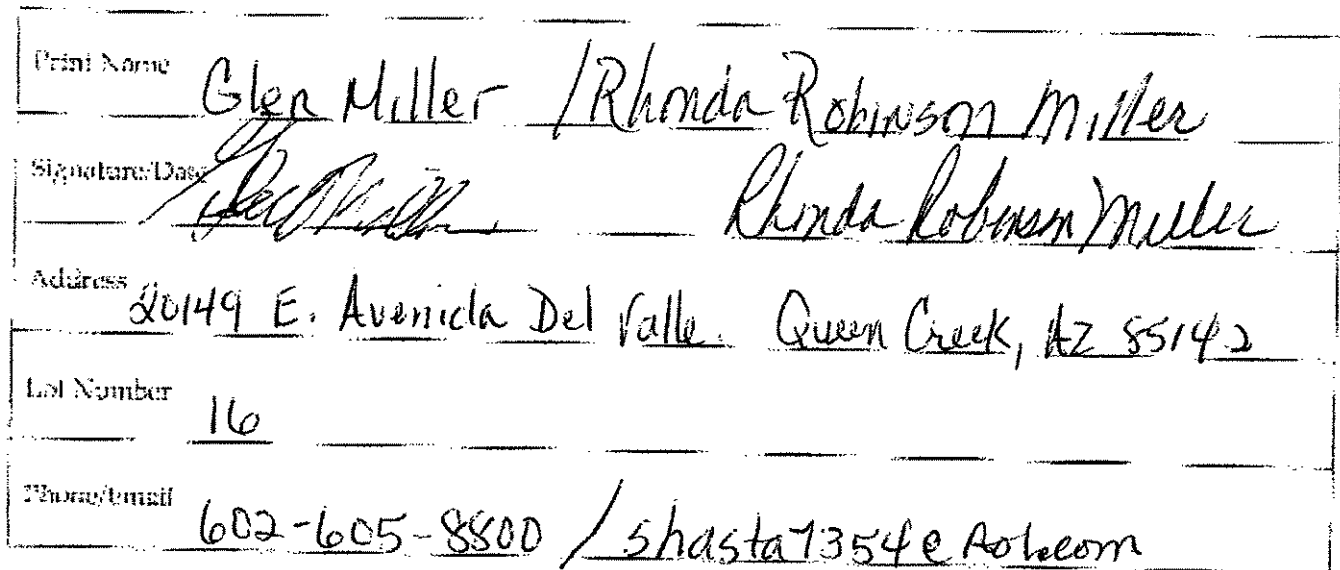 Print Name Glen Miller / Rhonda Robinson Miller
Signature/Date Rhonda Robinson Miller
Address 20149 E. Avenida Del Valle. Queen Creek, AZ 85142
Lot Number 16
Phone/Email 602-605-8800 / shasta7354@Aol.com